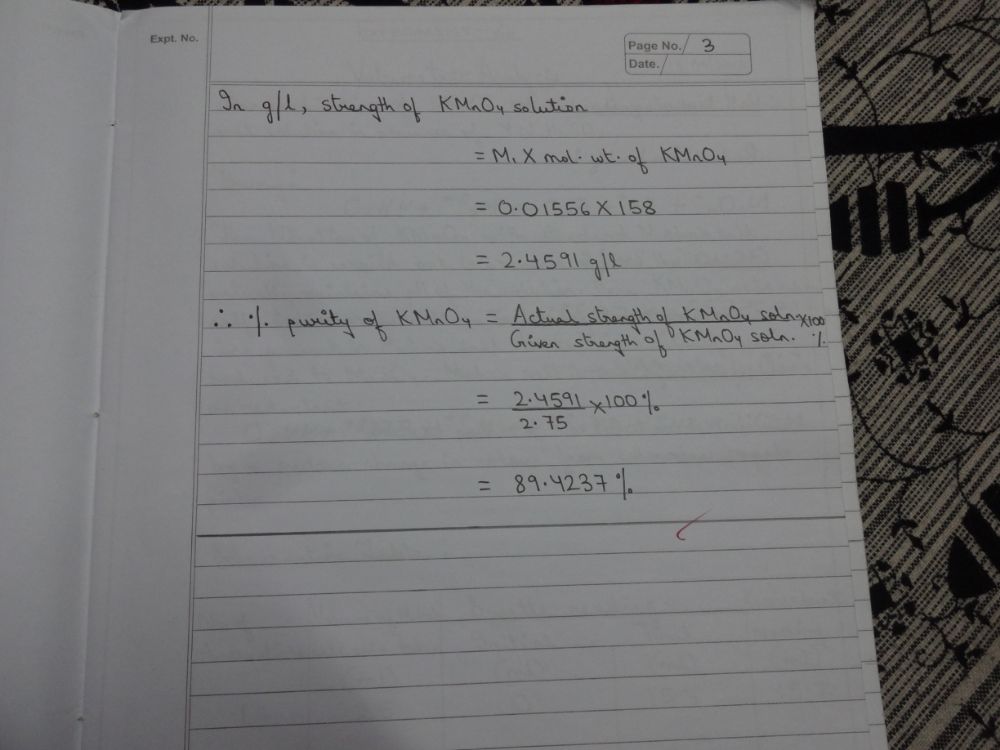 Expt. No.
Page No. 3
Date.
In g/l, strength of KMnO4 solution
= M1 X mol. wt. of KMnO4
= 0.01556 X 158
= 2.4591 g/l
∴ % purity of KMnO4 = Actual strength of KMnO4 soln. X100
Given strength of KMnO4 soln. %
= 2.4591 X 100 %
2.75
= 89.4237 %